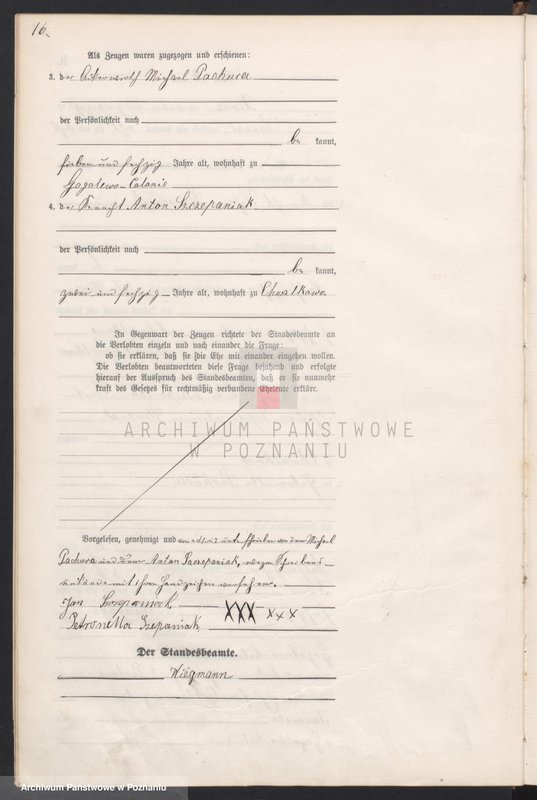 16.
Als Zeugen waren zugezogen und erschienen:
3. der Ackerwirth Michael Pachura
der Persönlichkeit nach
be kannt,
sieben und sechzig Jahre alt, wohnhaft zu
Gogolewo-Colonie
4. der Knecht Anton Szczepaniak
der Persönlichkeit nach
be kannt,
zwei und sechzig Jahre alt, wohnhaft zu Chwalkowo
In Gegenwart der Zeugen richtete der Standesbeamte an
die Verlobten einzeln und nach einander die Frage:
ob sie erklären, daß sie die Ehe mit einander eingehen wollen.
Die Verlobten beantworteten diese Frage bejahend und erfolgte
hierauf der Ausspruch des Standesbeamten, daß er sie nunmehr
kraft des Gesetzes für rechtmäßig verbundene Eheleute erkläre.
ARCHIWUM PAŃSTWOWE
W POZNANIU
Vorgelesen, genehmigt und unterschrieben von dem Michael
Pachura und dem Anton Szczepaniak, wegen Schreibens-
mit ihren Handzeichen versehen.
Jan XXX XXX
Petronella Szepaniak
Der Standesbeamte.
Wiegmann
Archiwum Państwowe w Poznaniu